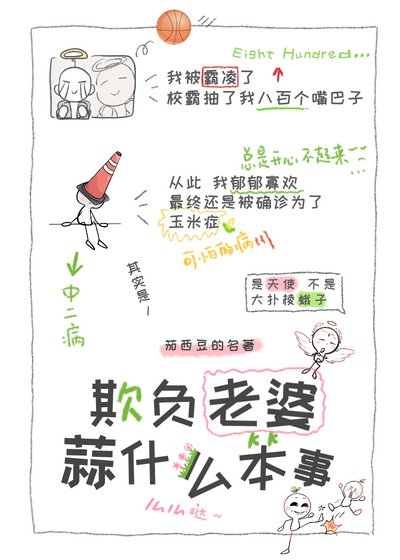 Eight Hundred...
我被霸凌了
校霸抽了我八百个嘴巴子
总是开心不起来~~
从此 我郁郁寡欢
最终还是被确诊为了
玉米症
可怕的病!!!
其实是
中二病
是天使 不是
大扑棱蛾子
茄西豆的名著
欺负老婆
蒜什么笨事
么么哒~